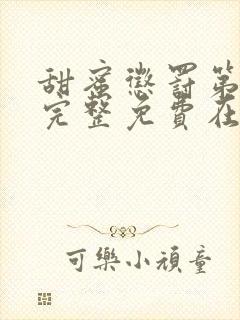 甜蜜懲罰第
完整免費在
可樂小頑童